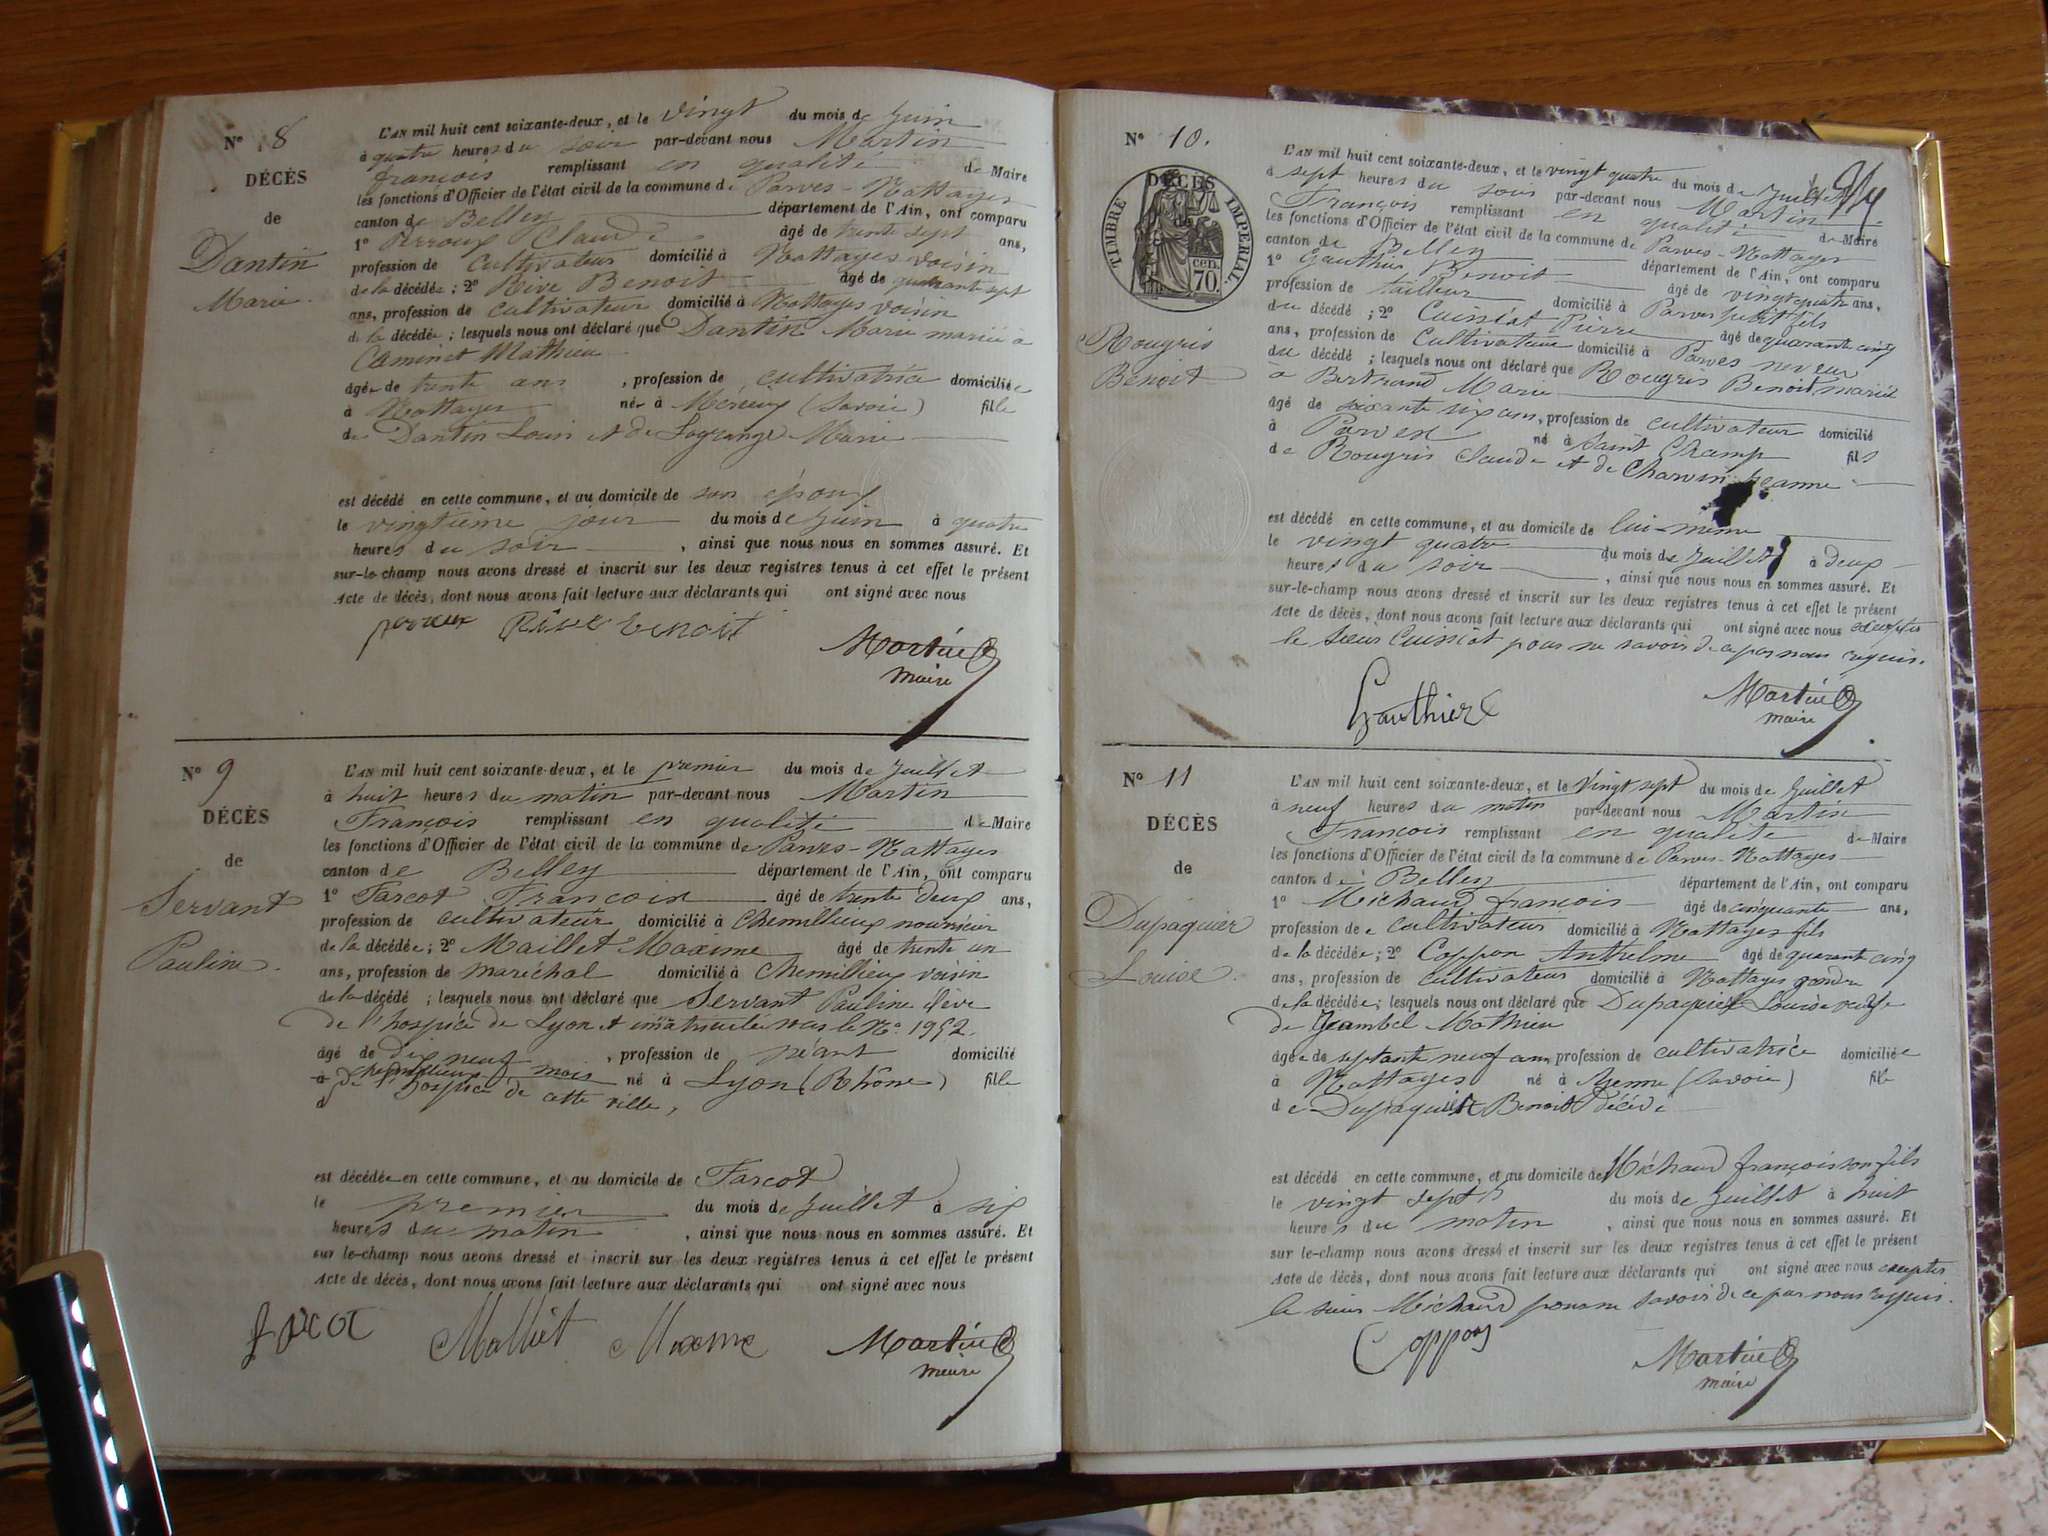 N° 8
DÉCÈS
de
Dantin
Marie.
L'AN mil huit cent soixante-deux, et le vingt du mois de Juin
à quatre heures du soir par-devant nous Martin
françois remplissant en qualité de Maire
les fonctions d'Officier de l'état civil de la commune de Parves-Nattages
canton de Belley département de l'Ain, ont comparu
1° Perroux Claude âgé de trente sept ans,
profession de cultivateur domicilié à Nattages voisin
de la décédée; 2° Rive Benoit âgé de quarante sept
ans, profession de cultivateur domicilié à Nattages voisin
de la décédée; lesquels nous ont déclaré que Dantin Marie mariée à
Caminet Mathieu
âgée de trente ans, profession de cultivatrice domiciliée
à Nattages née à (Savoie) fille
de Dantin Louis et de Lagrange Marie
est décédé en cette commune, et au domicile de son époux
le vingtième jour du mois de Juin à quatre
heures du soir, ainsi que nous nous en sommes assuré. Et
sur-le-champ nous avons dressé et inscrit sur les deux registres tenus à cet effet le présent
Acte de décès, dont nous avons fait lecture aux déclarants qui ont signé avec nous
Rive benoit
Martin
maire
N° 9
DÉCÈS
de
Servant
Pauline.
L'AN mil huit cent soixante-deux, et le premier du mois de Juillet
à huit heures du matin par-devant nous Martin
François remplissant en qualité de Maire
les fonctions d'Officier de l'état civil de la commune de Parves-Nattages
canton de Belley département de l'Ain, ont comparu
1° Farcot François âgé de trente deux ans,
profession de cultivateur domicilié à Chemillieux nourricier
de la décédée; 2° Maillet Maxime âgé de trente un
ans, profession de maréchal domicilié à Chemillieux voisin
de la décédé; lesquels nous ont déclaré que Servant Pauline élève
de l'hospice de Lyon et immatriculée sous le N° 1952.
âgé de dix neuf mois, profession de néant domicilié
à chemillieux né à Lyon (Rhône) fille
de l'hospice de cette ville,
est décédée en cette commune, et au domicile de Farcot
le premier du mois de Juillet à six
heures du matin, ainsi que nous nous en sommes assuré. Et
sur le-champ nous avons dressé et inscrit sur les deux registres tenus à cet effet le présent
Acte de décès, dont nous avons fait lecture aux déclarants qui ont signé avec nous
Martin
maire
N° 10.
TIMBRE IMPÉRIAL
70 cen.
DÉCÈS
de
Rougris
Benoit
L'AN mil huit cent soixante-deux, et le vingt quatre du mois de Juillet
à sept heures du soir par-devant nous Martin
François remplissant en qualité de Maire
les fonctions d'Officier de l'état civil de la commune de Parves-Nattages
canton de Belley département de l'Ain, ont comparu
1° Gauthier Benoit âgé de vingt quatre ans,
profession de tailleur domicilié à Parves petit fils
du décédé; 2° Cussiat Pierre âgé de quarante cinq
ans, profession de Cultivateur domicilié à Parves neveu
du décédé; lesquels nous ont déclaré que Rougris Benoit, marié
à Bertrand Marie
âgé de soixante six ans, profession de cultivateur domicilié
à Parves né à Saint Champ fils
de Rougris Claude et de Charvin jeanne
est décédé en cette commune, et au domicile de lui-même
le vingt quatre du mois de Juillet à deux
heures du soir, ainsi que nous nous en sommes assuré. Et
sur-le-champ nous avons dressé et inscrit sur les deux registres tenus à cet effet le présent
Acte de décès, dont nous avons fait lecture aux déclarants qui ont signé avec nous excepté
le sieur Cussiat pour ne savoir de ce par nous requis.
Gauthier
Martin
maire
N° 11
DÉCÈS
de
Dupaquier
Louise.
L'AN mil huit cent soixante-deux, et le vingt sept du mois de Juillet
à neuf heures du matin par-devant nous Martin
François remplissant en qualité de Maire
les fonctions d'Officier de l'état civil de la commune de Parves-Nattages
canton de Belley département de l'Ain, ont comparu
1° Michaud françois âgé de cinquante ans,
profession de cultivateur domicilié à Nattages fils
de la décédée; 2° Coppon Anthelme âgé de quarante cinq
ans, profession de cultivateur domicilié à Nattages gendre
de la décédée; lesquels nous ont déclaré que Dupaquier Louise veuve
de Mathieu
âgée de septante neuf ans, profession de cultivatrice domiciliée
à Nattages né à Yenne (Savoie) fille
de Dupaquier Benoit décédé
est décédé en cette commune, et au domicile de Michaud françois son fils
le vingt sept du mois de Juillet à huit
heures du matin, ainsi que nous nous en sommes assuré. Et
sur le-champ nous avons dressé et inscrit sur les deux registres tenus à cet effet le présent
Acte de décès, dont nous avons fait lecture aux déclarants qui ont signé avec nous excepté
le sieur Michaud pour ne savoir de ce par nous requis.
Coppon
Martin
maire